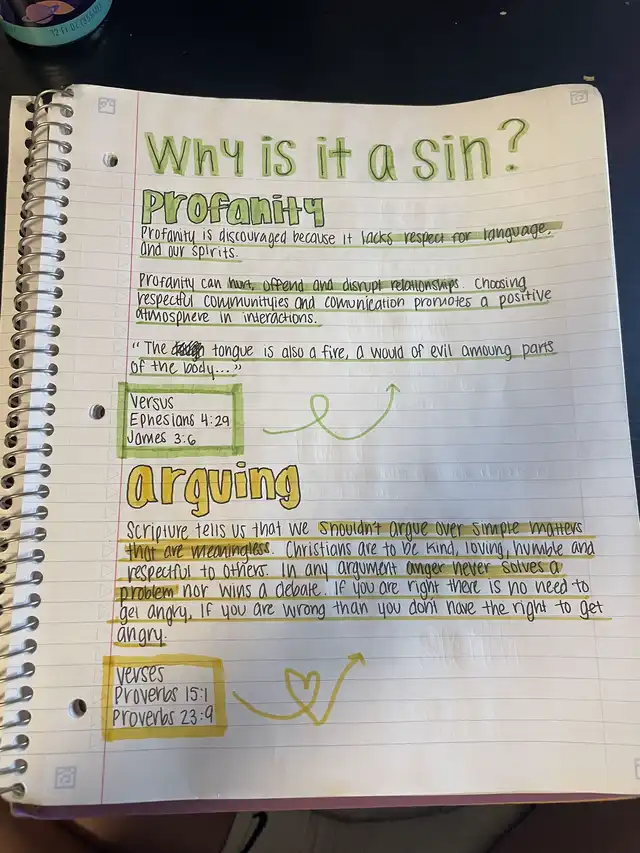 Why is it a sin?
Profanity
Profanity is discouraged because it lacks respect for language,
and our spirits.
Profanity can hurt, offend and disrupt relationships. Choosing
respectful communityies and comunication promotes a positive
atmosphere in interactions.
"The tongue is also a fire, a would of evil amoung parts
of the body..."
Versus
Ephesians 4:29
James 3:6
arguing
Scripture tells us that we shouldn't argue over simple matters
that are meaningless. Christians are to be kind, loving, humble and
respectful to others. In any argument anger never solves a
problem nor wins a debate. If you are right there is no need to
get angry, If you are wrong than you dont have the right to get
angry.
verses
Proverbs 15:1
Proverbs 23:9